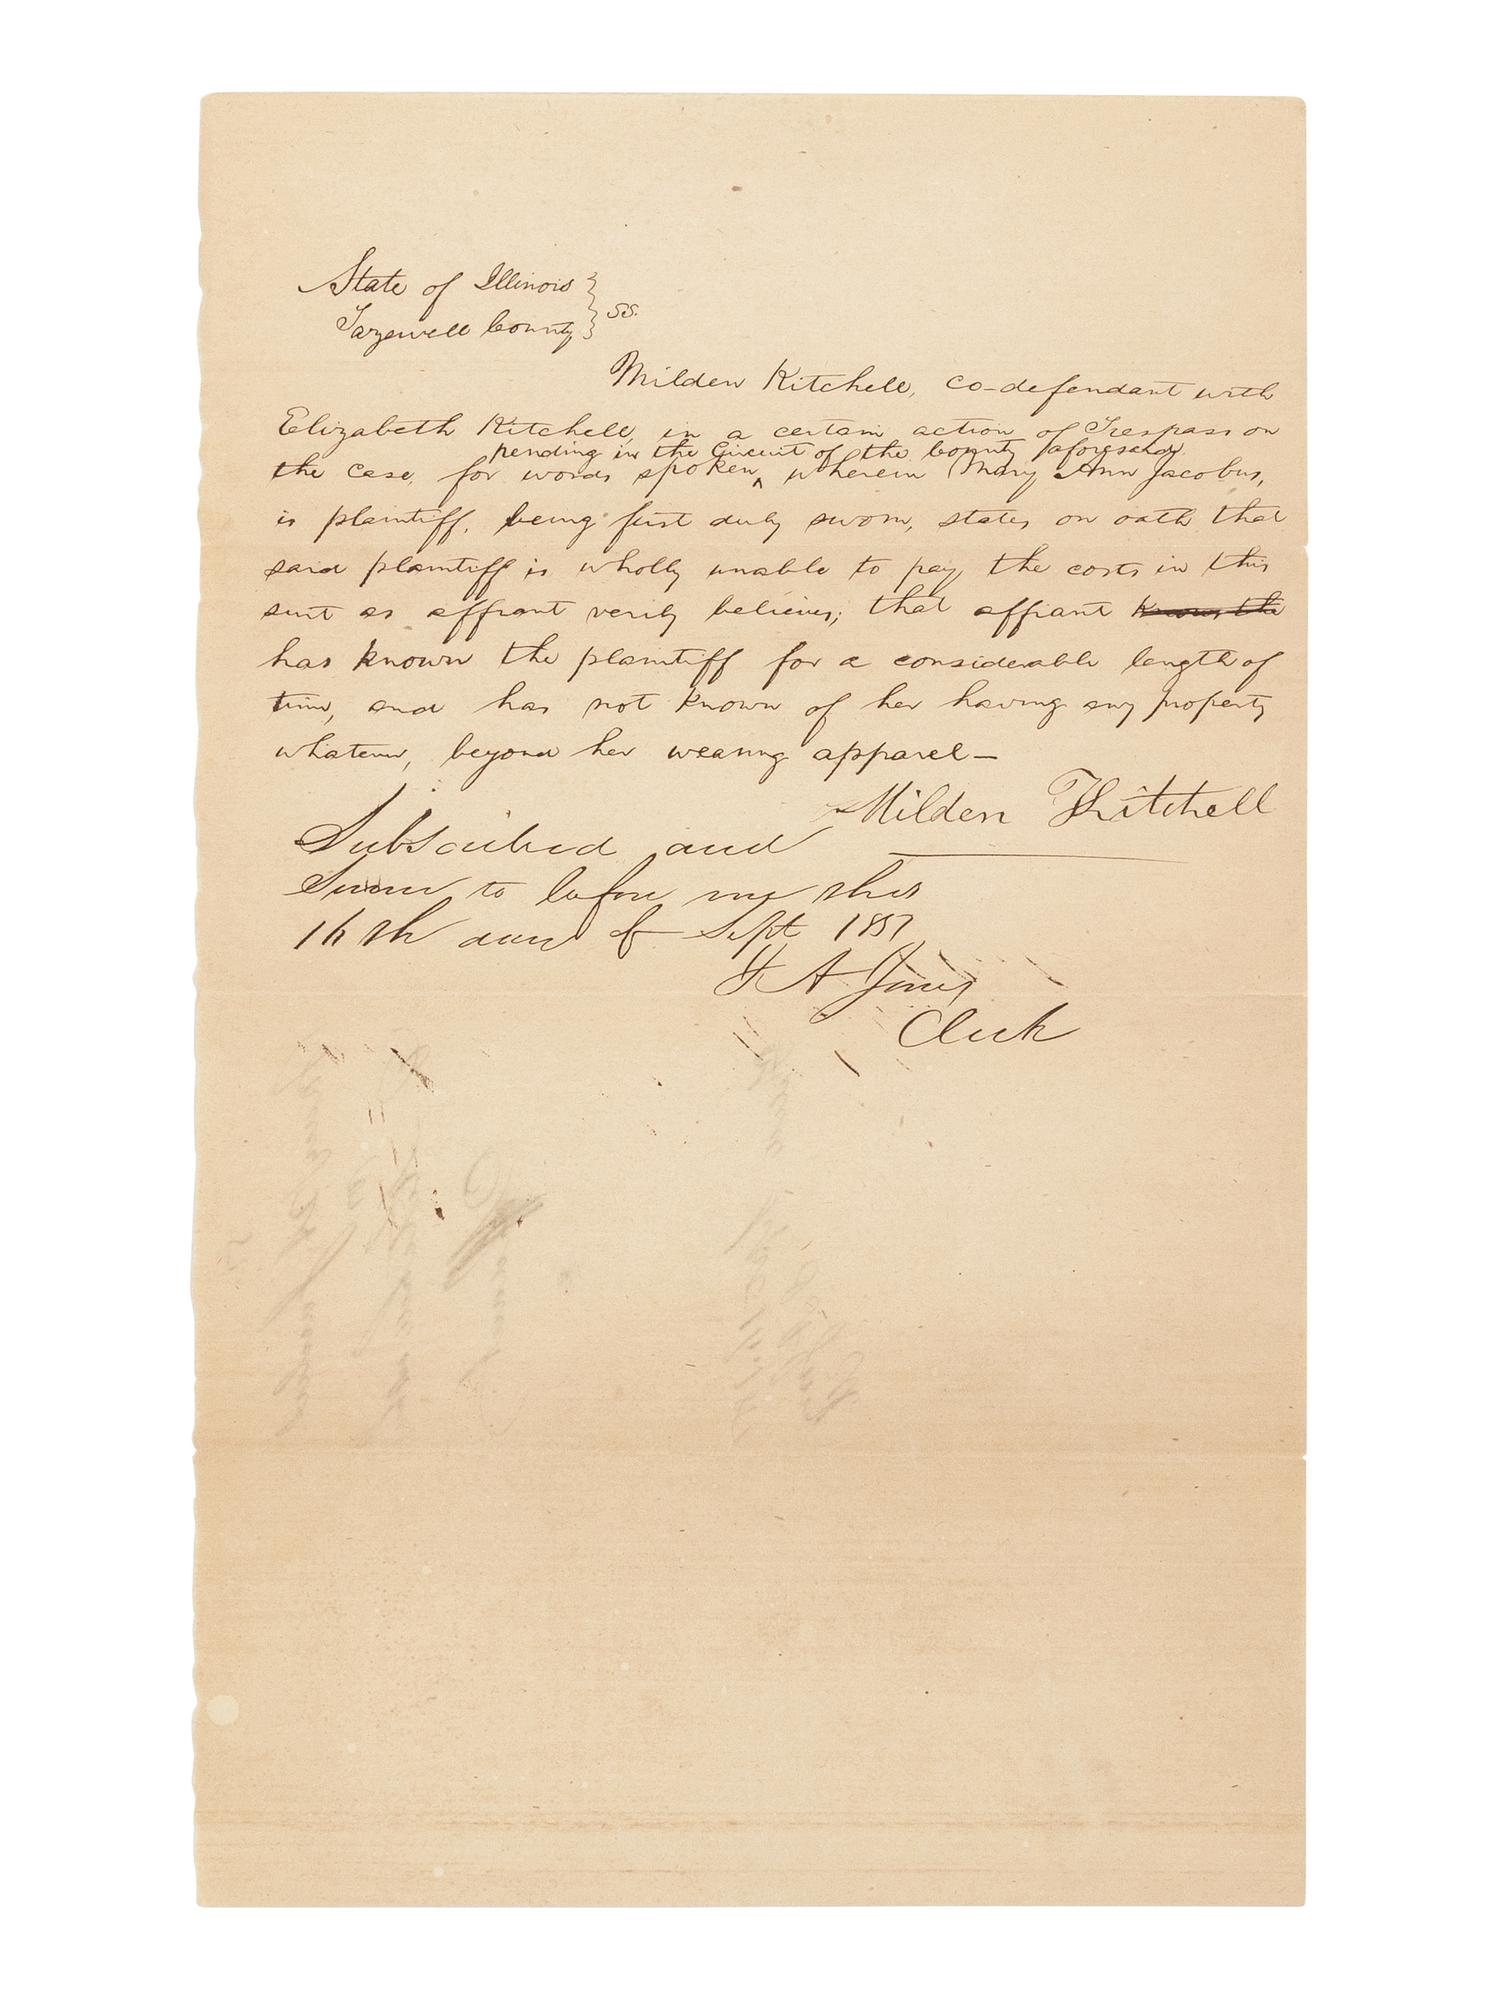 State of Illinois }
Tazewell County } SS.
Milden Kitchell, co-defendant with
Elizabeth Kitchell, in a certain action of Trespass on
pending in the Circuit of the County aforesaid,
the case, for words spoken ^ wherein Mary Ann Jacobus,
is plaintiff, being first duly sworn, states on oath that
said plaintiff is wholly unable to pay the costs in this
suit as affiant verily believes; that affiant knows the
has known the plaintiff for a considerable length of
time, and has not known of her having any property
whatever, beyond her wearing apparel—
Milden Kitchell
Subscribed and
Sworn to before me this
16th day of Sept 1857
A Jones
Clerk